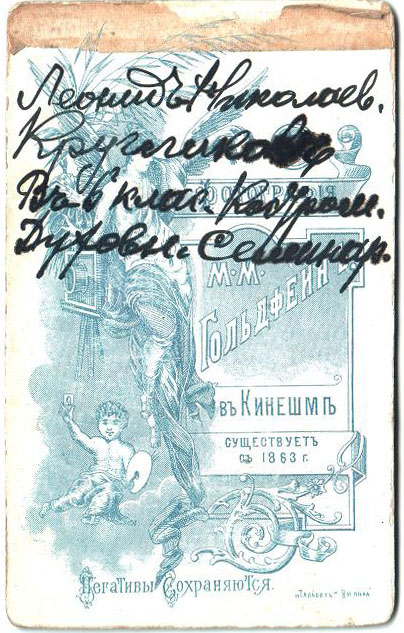 Леонидъ Николаев.
Кругликов
Въ 6 клас. Костром.
Духовн. Семинар.
ФОТОГРАФIЯ
М.М.
ГОЛЬДФЕЙНЪ
ВЪ КИНЕШМѢ
СУЩЕСТВУЕТЪ
СЪ 1863 г.
Негативы Сохраняются.